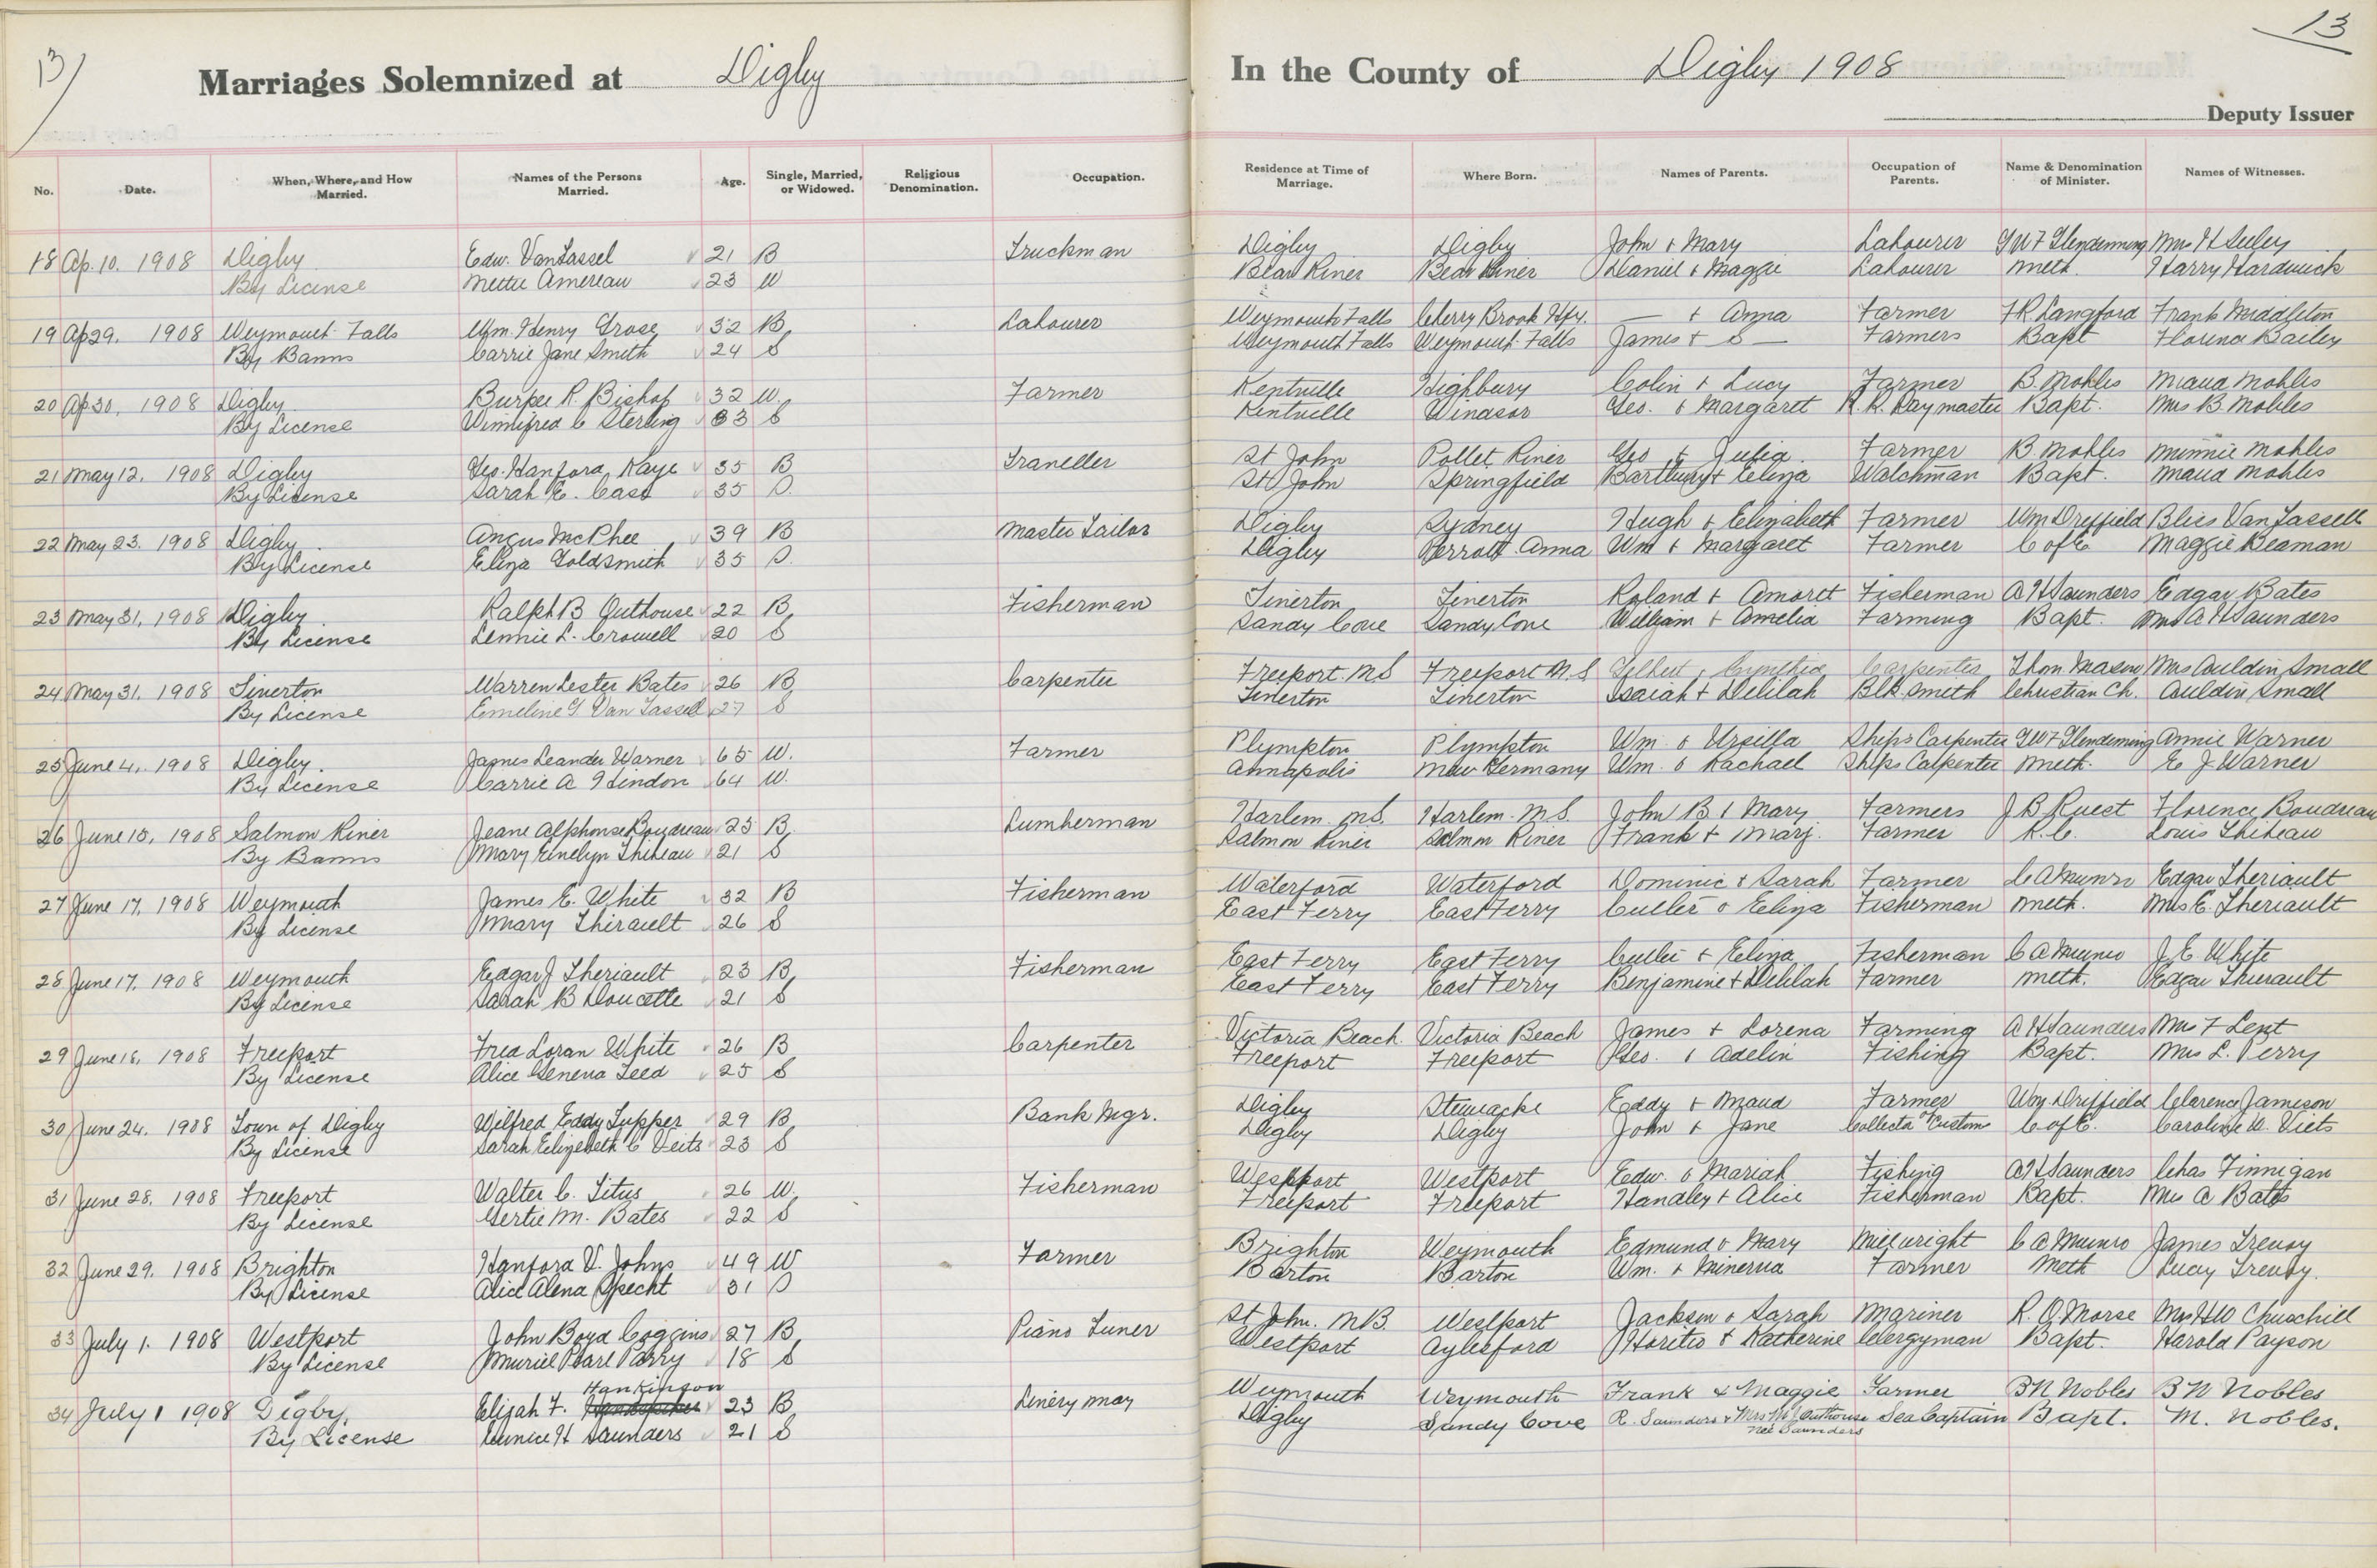 13
13
Marriages Solemnized at Digby
In the County of Digby 1908
Deputy Issuer
No. Date. When, Where, and How Married. Names of the Persons Married. Age. Single, Married, or Widowed. Religious Denomination. Occupation. Residence at Time of Marriage. Where Born. Names of Parents. Occupation of Parents. Name & Denomination of Minister. Names of Witnesses.
18 Ap. 10. 1908 Digby Edw. VanTassel 21 B Truckman Digby Digby John & Mary Labourer GWF Glendenning Mrs H Seeley
By License Mettie Amereau 23 W Bear River Bear River Daniel & Maggie Labourer Meth. Harry Hardwick
19 Ap 29. 1908 Weymouth Falls Wm. Henry Grose 32 B Labourer Weymouth Falls Cherry Brook Hfx. — & Anna Farmer F.R. Langford Frank Middleton
By Banns Carrie Jane Smith 24 S Weymouth Falls Weymouth Falls James & S — Farmers Bapt Florence Bailey
20 Ap 30. 1908 Digby Burpee R. Bishop 32 W. Farmer Kentville Highbury Colin & Lucy Farmer B. Nobles Maud Nobles
By License Winnifred C Sterling 33 S Kentville Windsor Geo. & Margaret R.R. Paymaster Bapt. Mrs B. Nobles
21 May 12. 1908 Digby Geo. Hanford Kaye 35 B Traveller St John Pollet River Geo & Julia Farmer B. Nobles Minnie Nobles
By License Sarah E. Case 35 S. St John Springfield & Eliza Watchman Bapt. Maud Nobles
22 May 23. 1908 Digby Angus McPhee 39 B Master Tailor Digby Sydney Hugh & Elizabeth Farmer Wm Driffield Bliss VanTassell
By License Eliza Goldsmith 35 S. Digby Perrott Anna Wm & Margaret Farmer C of E Maggie Beaman
23 May 31. 1908 Digby Ralph B Outhouse 22 B Fisherman Tiverton Tiverton Roland & Amoret Fisherman A H Saunders Edgar Bates
By License Lennie L. Crowell 20 S Sandy Cove Sandy Cove William & Amelia Farming Bapt. Mrs A H Saunders
24 May 31. 1908 Tiverton Warren Lester Bates 26 B Carpenter Freeport N.S Freeport N.S. Gilbert & Cynthia Carpenter Thon Mason Mrs Auldin Small
By License Emeline G Van Tassell 27 S Tiverton Tiverton Isaiah & Delilah Blk. smith Christian Ch. Auldin Small
25 June 4. 1908 Digby James Leander Warner 65 W. Farmer Plympton Plympton Wm. & Ursilla Ships Carpenter GWF Glendenning Annie Warner
By License Carrie A Hindon 64 W. Annapolis New Germany Wm. & Rachael Ships Carpenter Meth. E J Warner
26 June 15. 1908 Salmon River Jeane Alphonse Boudreau 25 B Lumberman Harlem N.S. Harlem N.S. John B & Mary Farmers J B Ruest Florence Boudreau
By Banns Mary Evnelyn Thibeau 21 S Salmon River Salmon River Frank & Mary. Farmer R.C. Louis Thibeau
27 June 17. 1908 Weymouth James E. White 32 B Fisherman Waterford Waterford Dominic & Sarah Farmer C A Munro Edgar Theriault
By License Mary Thirault 26 S East Ferry East Ferry Cutler & Eliza Fisherman Meth. Mrs E. Theriault
28 June 17. 1908 Weymouth Edgar J Theriault 23 B Fisherman East Ferry East Ferry Cutler & Eliza Fisherman C A Munro J. E. White
By License Sarah B Doucette 21 S East Ferry East Ferry Benjamine & Delilah Farmer Meth. Edgar Thurault
29 June 18. 1908 Freeport Fred Loran White 26 B Carpenter Victoria Beach Victoria Beach James & Lorena Farming A H Saunders Mrs F Lent
By License Alice Geneva Teed 25 S Freeport Freeport Geo. & Adelin Fishing Bapt. Mrs L. Perry
30 June 24. 1908 Town of Digby Wilfred Eddy Tupper 29 B Bank Mgr. Digby Stewiacke Eddy & Maud Farmer Wm. Driffield Clarence Jameson
By License Sarah Elizebeth C Veits 23 S Digby Digby John & Jane Collector of Customs C. of E. Caroline W. Viets
31 June 28. 1908 Freeport Walter C. Titus 26 W. Fisherman Westport Westport Edw. & Mariah Fishing A H Saunders Chas Finnigan
By License Gertie M. Bates 22 S Freeport Freeport Handley & Alice Fisherman Bapt. Mrs A Bates
32 June 29. 1908 Brighton Hanford V. Johns 49 W Farmer Brighton Weymouth Edmund & Mary Millwright C A Munro James Trevoy
By License Alice Alena Specht 31 S Barton Barton Wm. & Minerva Farmer Meth Lucy Trevoy.
33 July 1. 1908 Westport John Boyd Coggins 27 B Piano Tuner St John. N B Westport Jackson & Sarah Mariner R. O. Morse Mrs HW Churchill
By License Muriel Pearl Parry 18 S Westport Aylesford Horitio & Katherine Clergyman Bapt. Harold Payson
Hankinson
34 July 1 1908 Digby. Elijah F. 23 B Livery man Weymouth Weymouth Frank & Maggie Farmer B N Nobles B N Nobles
By License Eunice H Saunders 21 S Digby Sandy Cove R. Saunders & Mrs M J Outhouse Sea Captain Bapt. M. Nobles.
nee Saunders